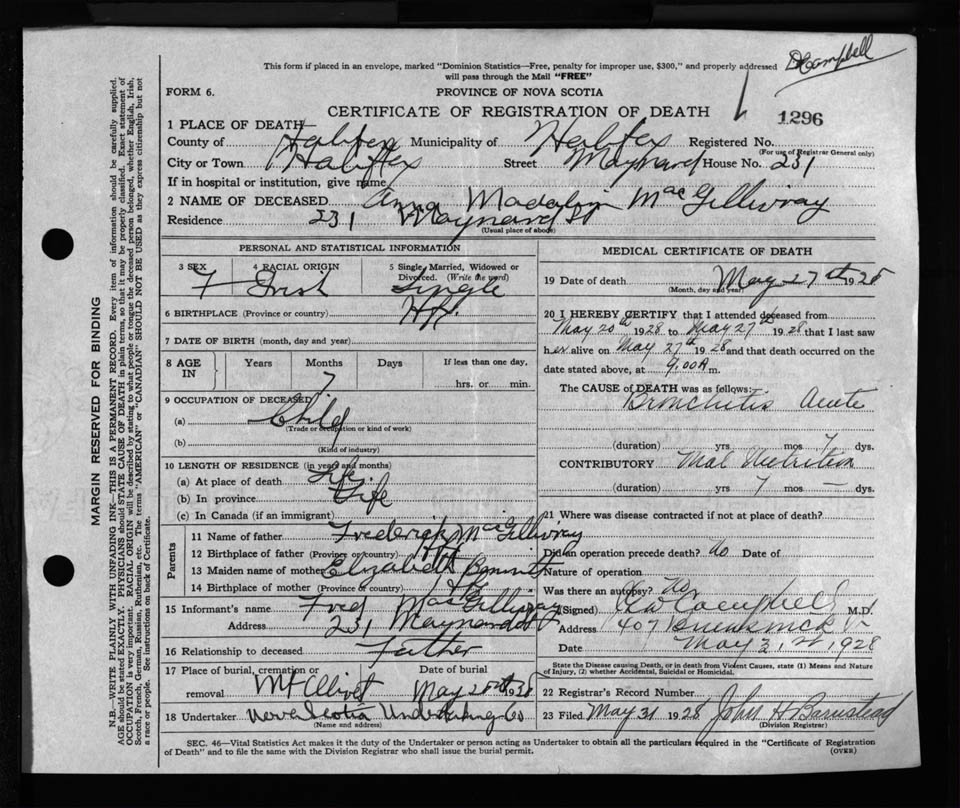 This form if placed in an envelope, marked "Dominion Statistics—Free, penalty for improper use, $300," and properly addressed
will pass through the Mail "FREE"
Campbell
FORM 6.
PROVINCE OF NOVA SCOTIA
CERTIFICATE OF REGISTRATION OF DEATH
1296
1 PLACE OF DEATH
County of Halifax Municipality of Halifax Registered No.
(For use of Registrar General only)
City or Town Halifax Street Maynard House No. 231
If in hospital or institution, give name
2 NAME OF DECEASED Anna Madalin MacGillivray
Residence 231 Maynard St
(Usual place of abode)
PERSONAL AND STATISTICAL INFORMATION
3 SEX 4 RACIAL ORIGIN 5 Single, Married, Widowed or Divorced. (Write the word)
F Irish Single
6 BIRTHPLACE (Province or country) Hfx.
7 DATE OF BIRTH (month, day and year)
8 AGE IN Years Months Days If less than one day,
7 hrs. or min.
9 OCCUPATION OF DECEASED
(a) Child
(Trade or occupation or kind of work)
(b)
(Kind of industry)
10 LENGTH OF RESIDENCE (in years and months)
(a) At place of death Life.
(b) In province Life
(c) In Canada (if an immigrant)
Parents
11 Name of father Frederick MacGillivray
12 Birthplace of father (Province or country) Hfx
13 Maiden name of mother Elizabeth Bennett
14 Birthplace of mother (Province or country)
15 Informant's name Fred MacGillivray
Address 231 Maynard St
16 Relationship to deceased Father
17 Place of burial, cremation or removal Mt Olivet Date of burial May 28th 1928
18 Undertaker Nova Scotia Undertaking Co
(Name and address)
MEDICAL CERTIFICATE OF DEATH
19 Date of death May 27th 1928
(Month, day and year)
20 I HEREBY CERTIFY that I attended deceased from
May 20th 1928 to May 27th 1928 that I last saw
her alive on May 27th 1928 and that death occurred on the
date stated above, at 9.00 A m.
The CAUSE of DEATH was as follows:
Bronchitis Acute
(duration) yrs mos 7 dys.
CONTRIBUTORY Mal Nutrition
(duration) yrs 7 mos — dys.
21 Where was disease contracted if not at place of death?
Did an operation precede death? No Date of
Nature of operation
Was there an autopsy? No
(Signed) Campbell M.D.
Address 407 Brunswick St
Date May 31 1928
State the Disease causing Death, or in death from Violent Causes, state (1) Means and Nature
of Injury, (2) whether Accidental, Suicidal or Homicidal.
22 Registrar's Record Number
23 Filed May 31 1928 John H Barnstead
(Division Registrar)
SEC. 46—Vital Statistics Act makes it the duty of the Undertaker or person acting as Undertaker to obtain all the particulars required in the "Certificate of Registration
of Death" and to file the same with the Division Registrar who shall issue the burial permit.
(OVER)
MARGIN RESERVED FOR BINDING
N.B.—WRITE PLAINLY WITH UNFADING INK—THIS IS A PERMANENT RECORD. Every item of information should be carefully supplied.
AGE should be stated EXACTLY. PHYSICIANS should STATE CAUSE OF DEATH in plain terms, so that it may be properly classified. Exact statement of
OCCUPATION is very important. RACIAL ORIGIN will be described by stating to what people or tongue the deceased person belonged, whether English, Irish,
Scotch, French, German, Russian, Ruthenian, etc. The terms "AMERICAN" or "CANADIAN" SHOULD NOT BE USED as they express citizenship but not
a race or people. See instructions on back of Certificate.